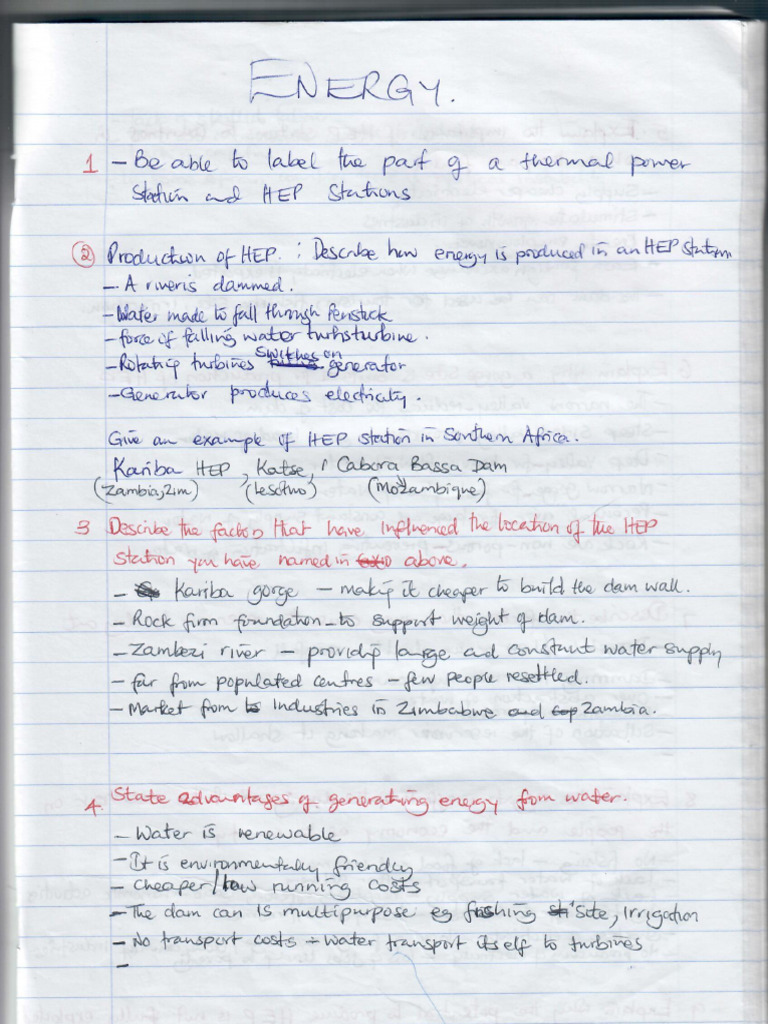 ENERGY.
1 - Be able to label the part of a thermal power
Station and HEP Stations
2 Production of HEP. : Describe how energy is produced in an HEP station
- A river is dammed.
- Water made to fall through Penstock
- force of falling water turns turbine.
- Rotating turbines switches on generator
- Generator produces electricity.
Give an example of HEP station in Southern Africa.
Kariba HEP, Katse, Cabora Bassa Dam
(Zambia, Zim) (Lesotho) (Mozambique)
3 Describe the factors that have influenced the location of the HEP
Station you have named in above.
- Kariba gorge - making it cheaper to build the dam wall.
- Rock firm foundation - to support weight of dam.
- Zambezi river - providing large and constant water supply
- far from populated centres - few people resettled.
- Market from Industries in Zimbabwe and Zambia.
4. State advantages of generating energy from water.
- Water is renewable
- It is environmentally friendly
- Cheaper/low running costs
- The dam can is multipurpose eg fishing site, irrigation
- No transport costs - water transport itself to turbines
-